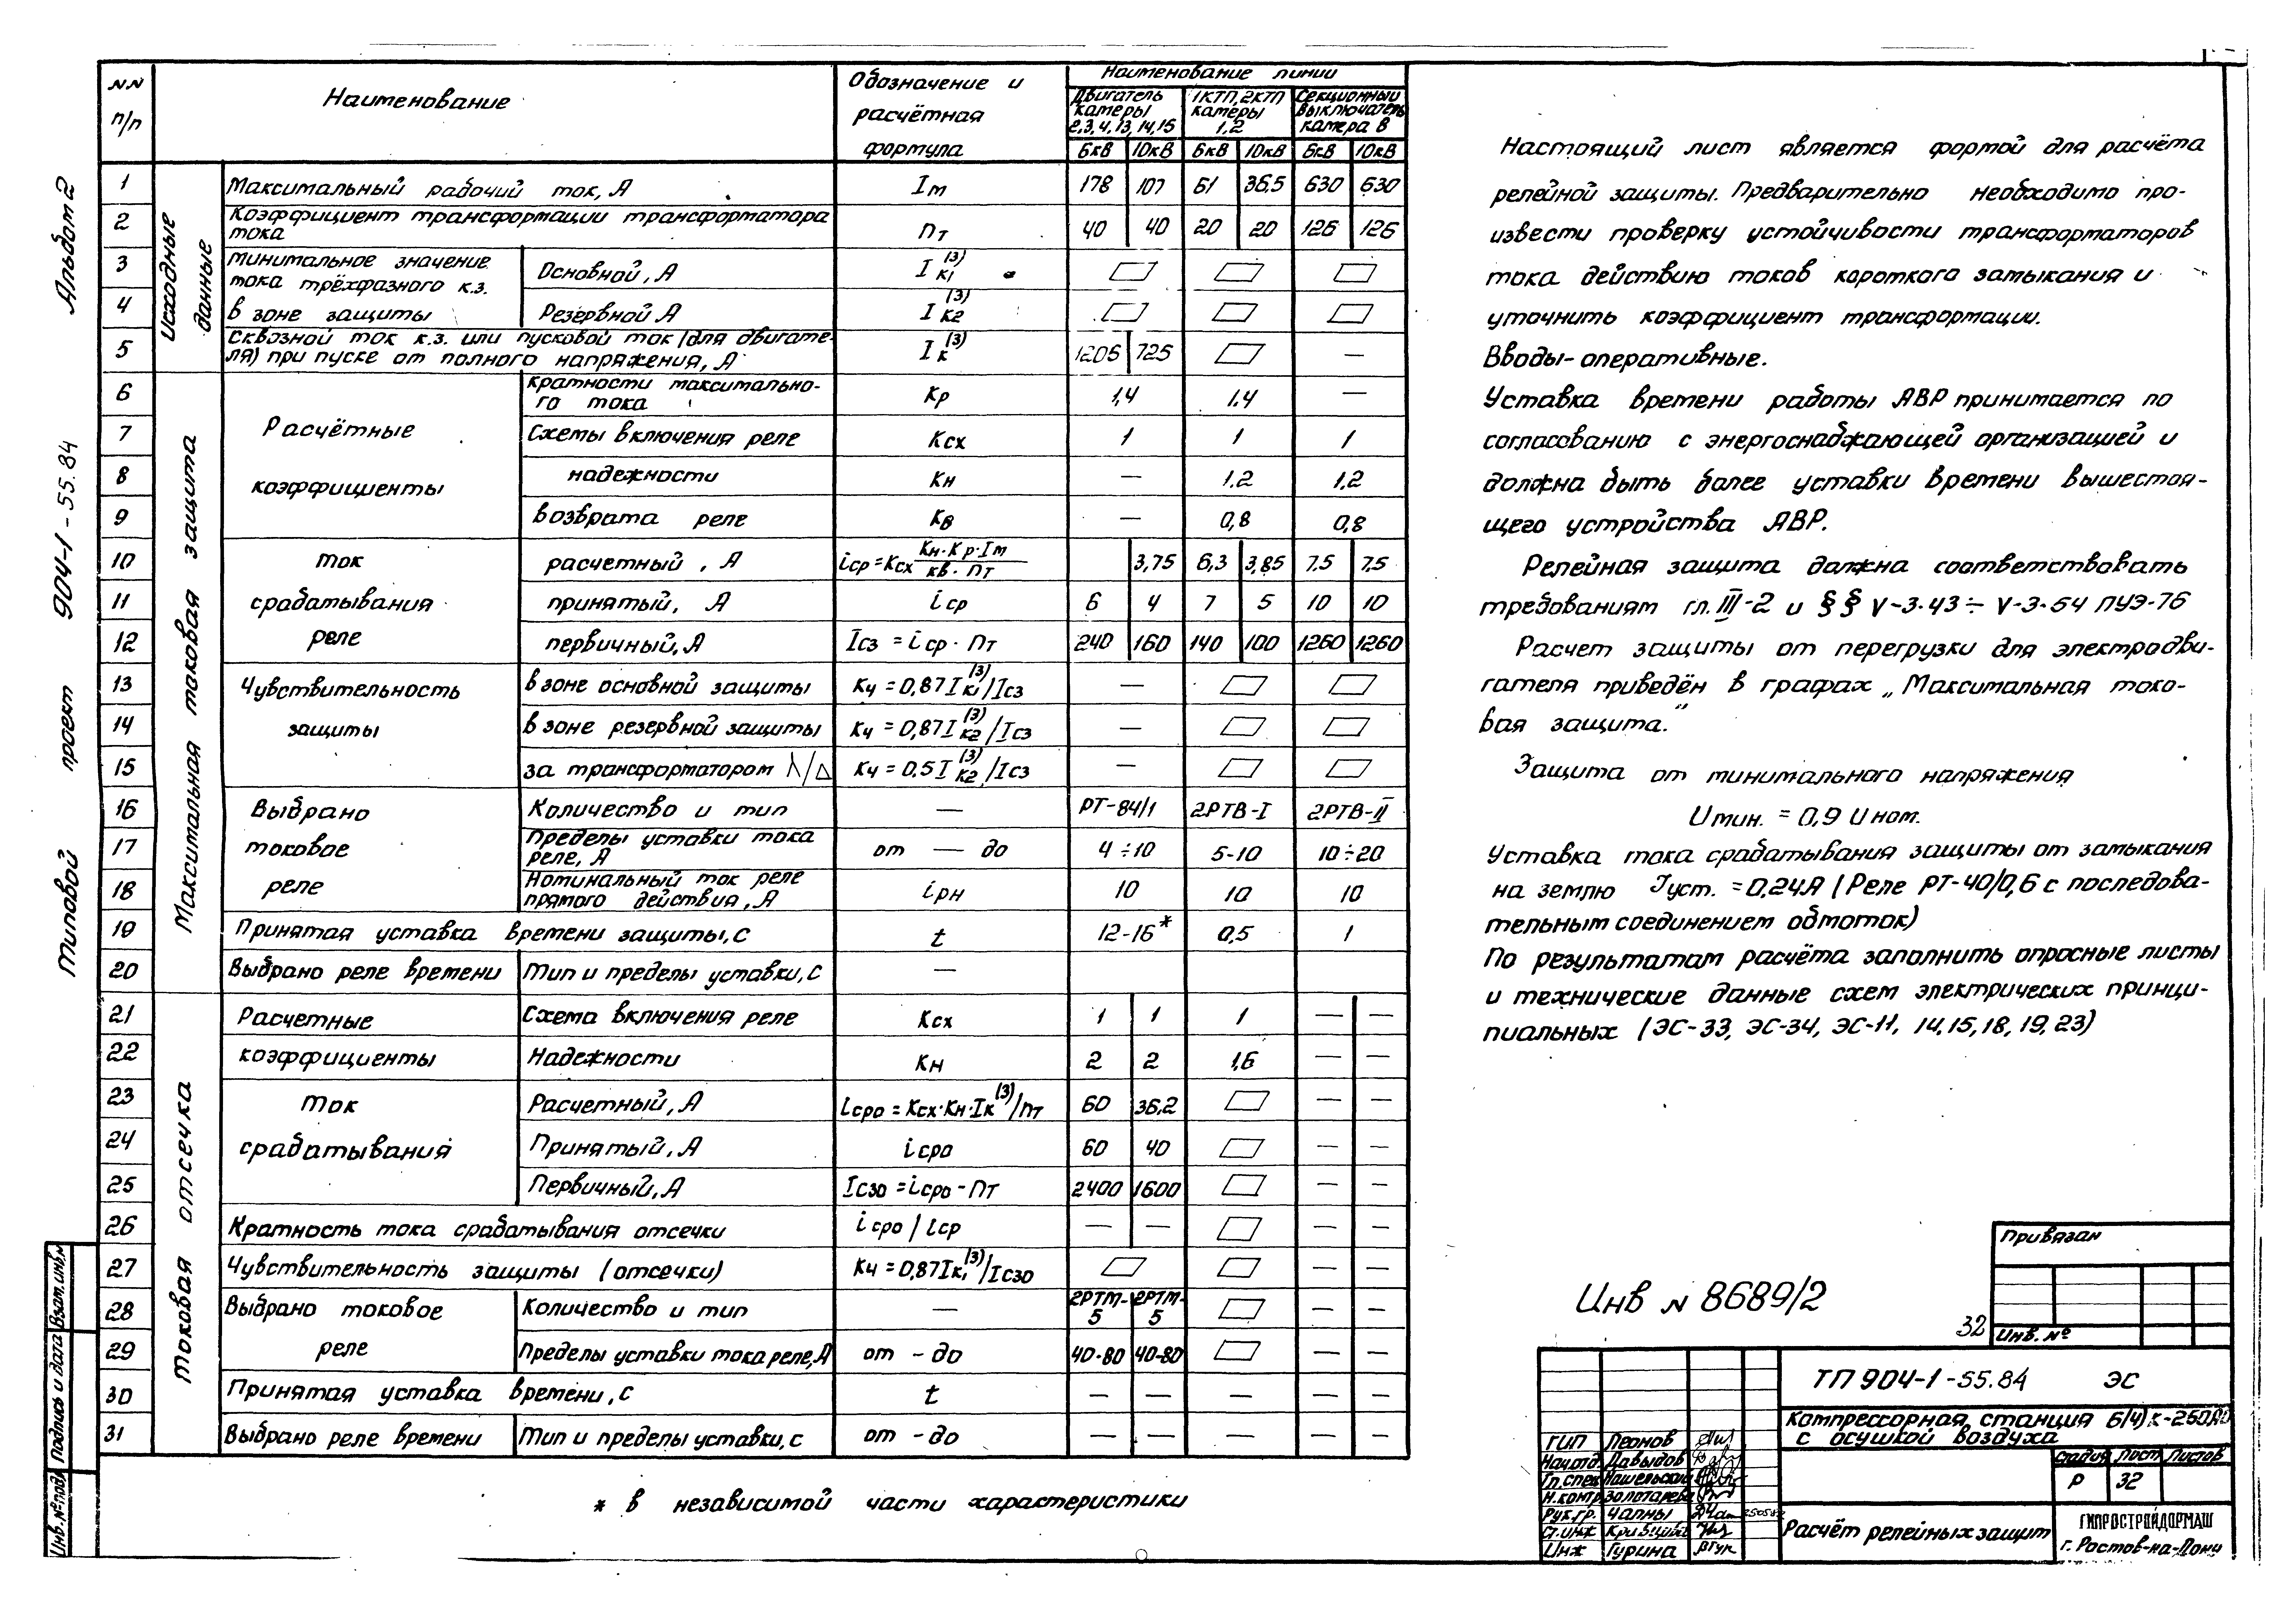 Альбом 2
904-1-55.84
проект
Типовой
Взам. инв. №
Подпись и дата
Инв. № подл.
NN п/п
Наименование
Обозначение и расчётная формула
Наименование линии
Двигатель камеры 2,3,4,13,14,15
1КТП, 2КТП камеры 1,2
Секционный выключатель камера 8
6кВ 10кВ 6кВ 10кВ 6кВ 10кВ
Исходные данные
1 Максимальный рабочий ток, А Iм 178 107 61 36.5 630 630
2 Коэффициент трансформации трансформатора тока nт 40 40 20 20 126 126
Минимальное значение тока трёхфазного к.з. в зоне защиты
3 Основной, А I к1 (3)
4 Резервной А I к2 (3)
5 Сквозной ток к.з. или пусковой ток (для двигателя) при пуске от полного напряжения, А I к (3) 1205 725 —
Максимальная токовая защита
Расчётные коэффициенты
6 кратности максимального тока Кр 1,4 1.4 —
7 Схемы включения реле Ксх 1 1 1
8 надежности Кн — 1.2 1.2
9 возврата реле Кв — 0,8 0,8
Ток срабатывания реле
10 расчетный, А iср = Ксх Кн·Кр·Iм / Кв·nт 3,75 6,3 3,85 7.5 7,5
11 принятый, А iср 6 4 7 5 10 10
12 первичный, А Iсз = iср · nт 240 160 140 100 1260 1260
Чувствительность защиты
13 в зоне основной защиты Кч = 0,87 I к1 (3) / Iсз —
14 в зоне резервной защиты Кч = 0,87 I к2 (3) / Iсз —
15 за трансформатором Y/Δ Кч = 0.5 I к2 (3) / Iсз —
Выбрано токовое реле
16 Количество и тип — РТ-84/1 2РТВ-I 2РТВ-II
17 Пределы уставки тока реле, А от — до 4÷10 5-10 10÷20
18 Номинальный ток реле прямого действия, А iрн 10 10 10
19 Принятая уставка времени защиты, с t 12-16* 0,5 1
20 Выбрано реле времени Тип и пределы уставки, с —
Токовая отсечка
Расчетные коэффициенты
21 Схема включения реле Ксх 1 1 1 — —
22 Надежности Кн 2 2 1,6 — —
Ток срабатывания
23 Расчетный, А iсро = Ксх·Кн·Iк (3) / nт 60 36.2 — —
24 Принятый, А iсро 60 40 — —
25 Первичный, А Iсзо = iсро - nт 2400 1600 — —
26 Кратность тока срабатывания отсечки iсро / iср — — — —
27 Чувствительность защиты (отсечки) Кч = 0,87 Iк1 (3) / Iсзо — —
Выбрано токовое реле
28 Количество и тип — 2РТМ-5 2РТМ-5 — —
29 Пределы уставки тока реле, А от - до 40-80 40-80 — —
30 Принятая уставка времени, с t — — — — —
31 Выбрано реле времени Тип и пределы уставки, с от - до — — — — —
* в независимой части характеристики
Настоящий лист является формой для расчёта
релейной защиты. Предварительно необходимо про-
извести проверку устойчивости трансформаторов
тока действию токов короткого замыкания и
уточнить коэффициент трансформации.
Вводы-оперативные.
Уставка времени работы АВР принимается по
согласованию с энергоснабжающей организацией и
должна быть более уставки времени вышестоя-
щего устройства АВР.
Релейная защита должна соответствовать
требованиям гл. III-2 и §§ V-3.43 ÷ V-3-54 ПУЭ-76
Расчет защиты от перегрузки для электродви-
гателя приведён в графах „Максимальная токо-
вая защита."
Защита от минимального напряжения
U мин. = 0,9 U ном.
Уставка тока срабатывания защиты от замыкания
на землю Jуст. = 0,24А (Реле РТ-40/0,6 с последова-
тельным соединением обмоток)
По результатам расчёта заполнить опросные листы
и технические данные схем электрических принци-
пиальных (ЭС-33, ЭС-34, ЭС-11, 14,15,18,19,23)
Инв N 8689/2
32
Привязан
Инв. №
ТП 904-1-55.84 ЭС
Компрессорная станция 6(4)К-250А0
с осушкой воздуха
Стадия Лист Листов
Р 32
Расчёт релейных защит
ГИПРОСТРОЙДОРМАШ
г. Ростов-на-Дону
ГИП Леонов
Нач.отд. Давыдов
Гл.спец.
Н.контр. Золотарева
Рук.гр. Чапны
Ст.инж
Инж Гурина